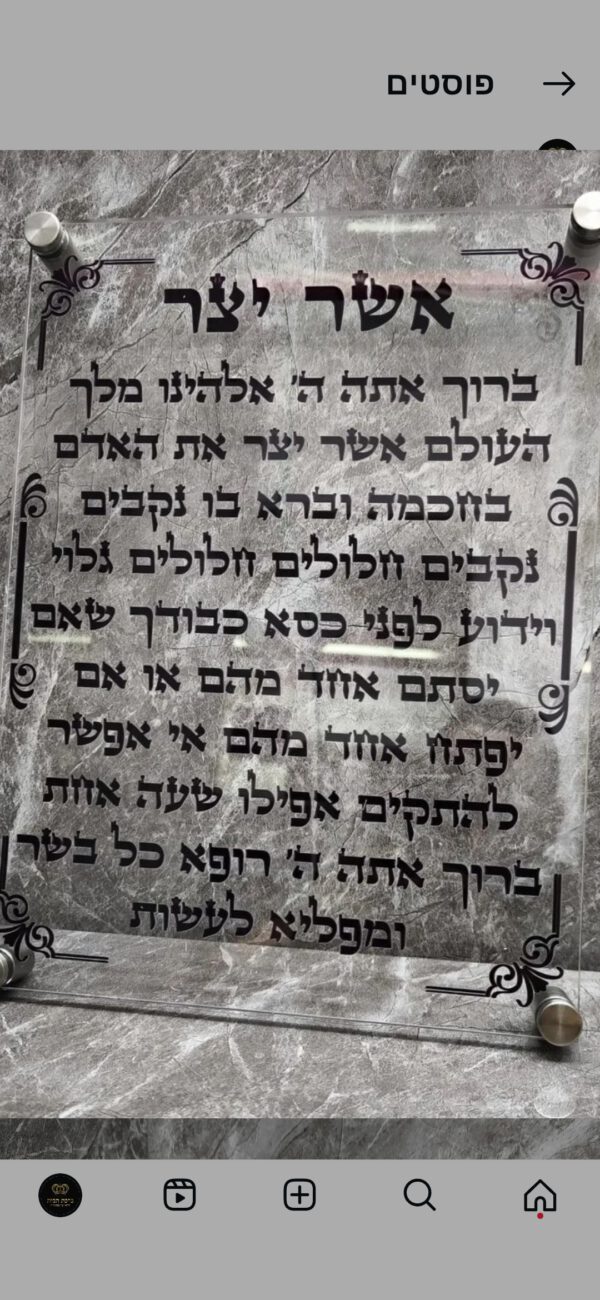 פוסטים
אשר יצר
ברוך אתה ה׳ אלהינו מלך
העולם אשר יצר את האדם
בחכמה וברא בו נקבים
נקבים חלולים חלולים גלוי
וידוע לפני כסא כבודך שאם
יסתם אחד מהם או אם
יפתח אחד מהם אי אפשר
להתקים אפילו שעה אחת
ברוך אתה ה׳ רופא כל בשר
ומפליא לעשות